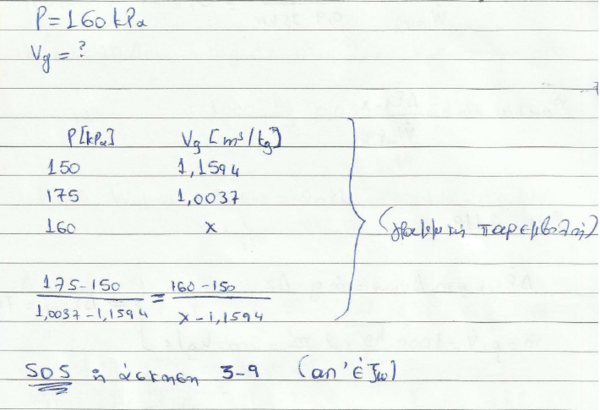 P = 160 kPa
Vg = ?
P [kPa] Vg [m³/kg]
150 1,1594
175 1,0037
160 x
(γραμμική παρεμβολή)
175-150 / 1,0037-1,1594 = 160-150 / x-1,1594
SOS η άσκηση 3-9 (απ' έξω)